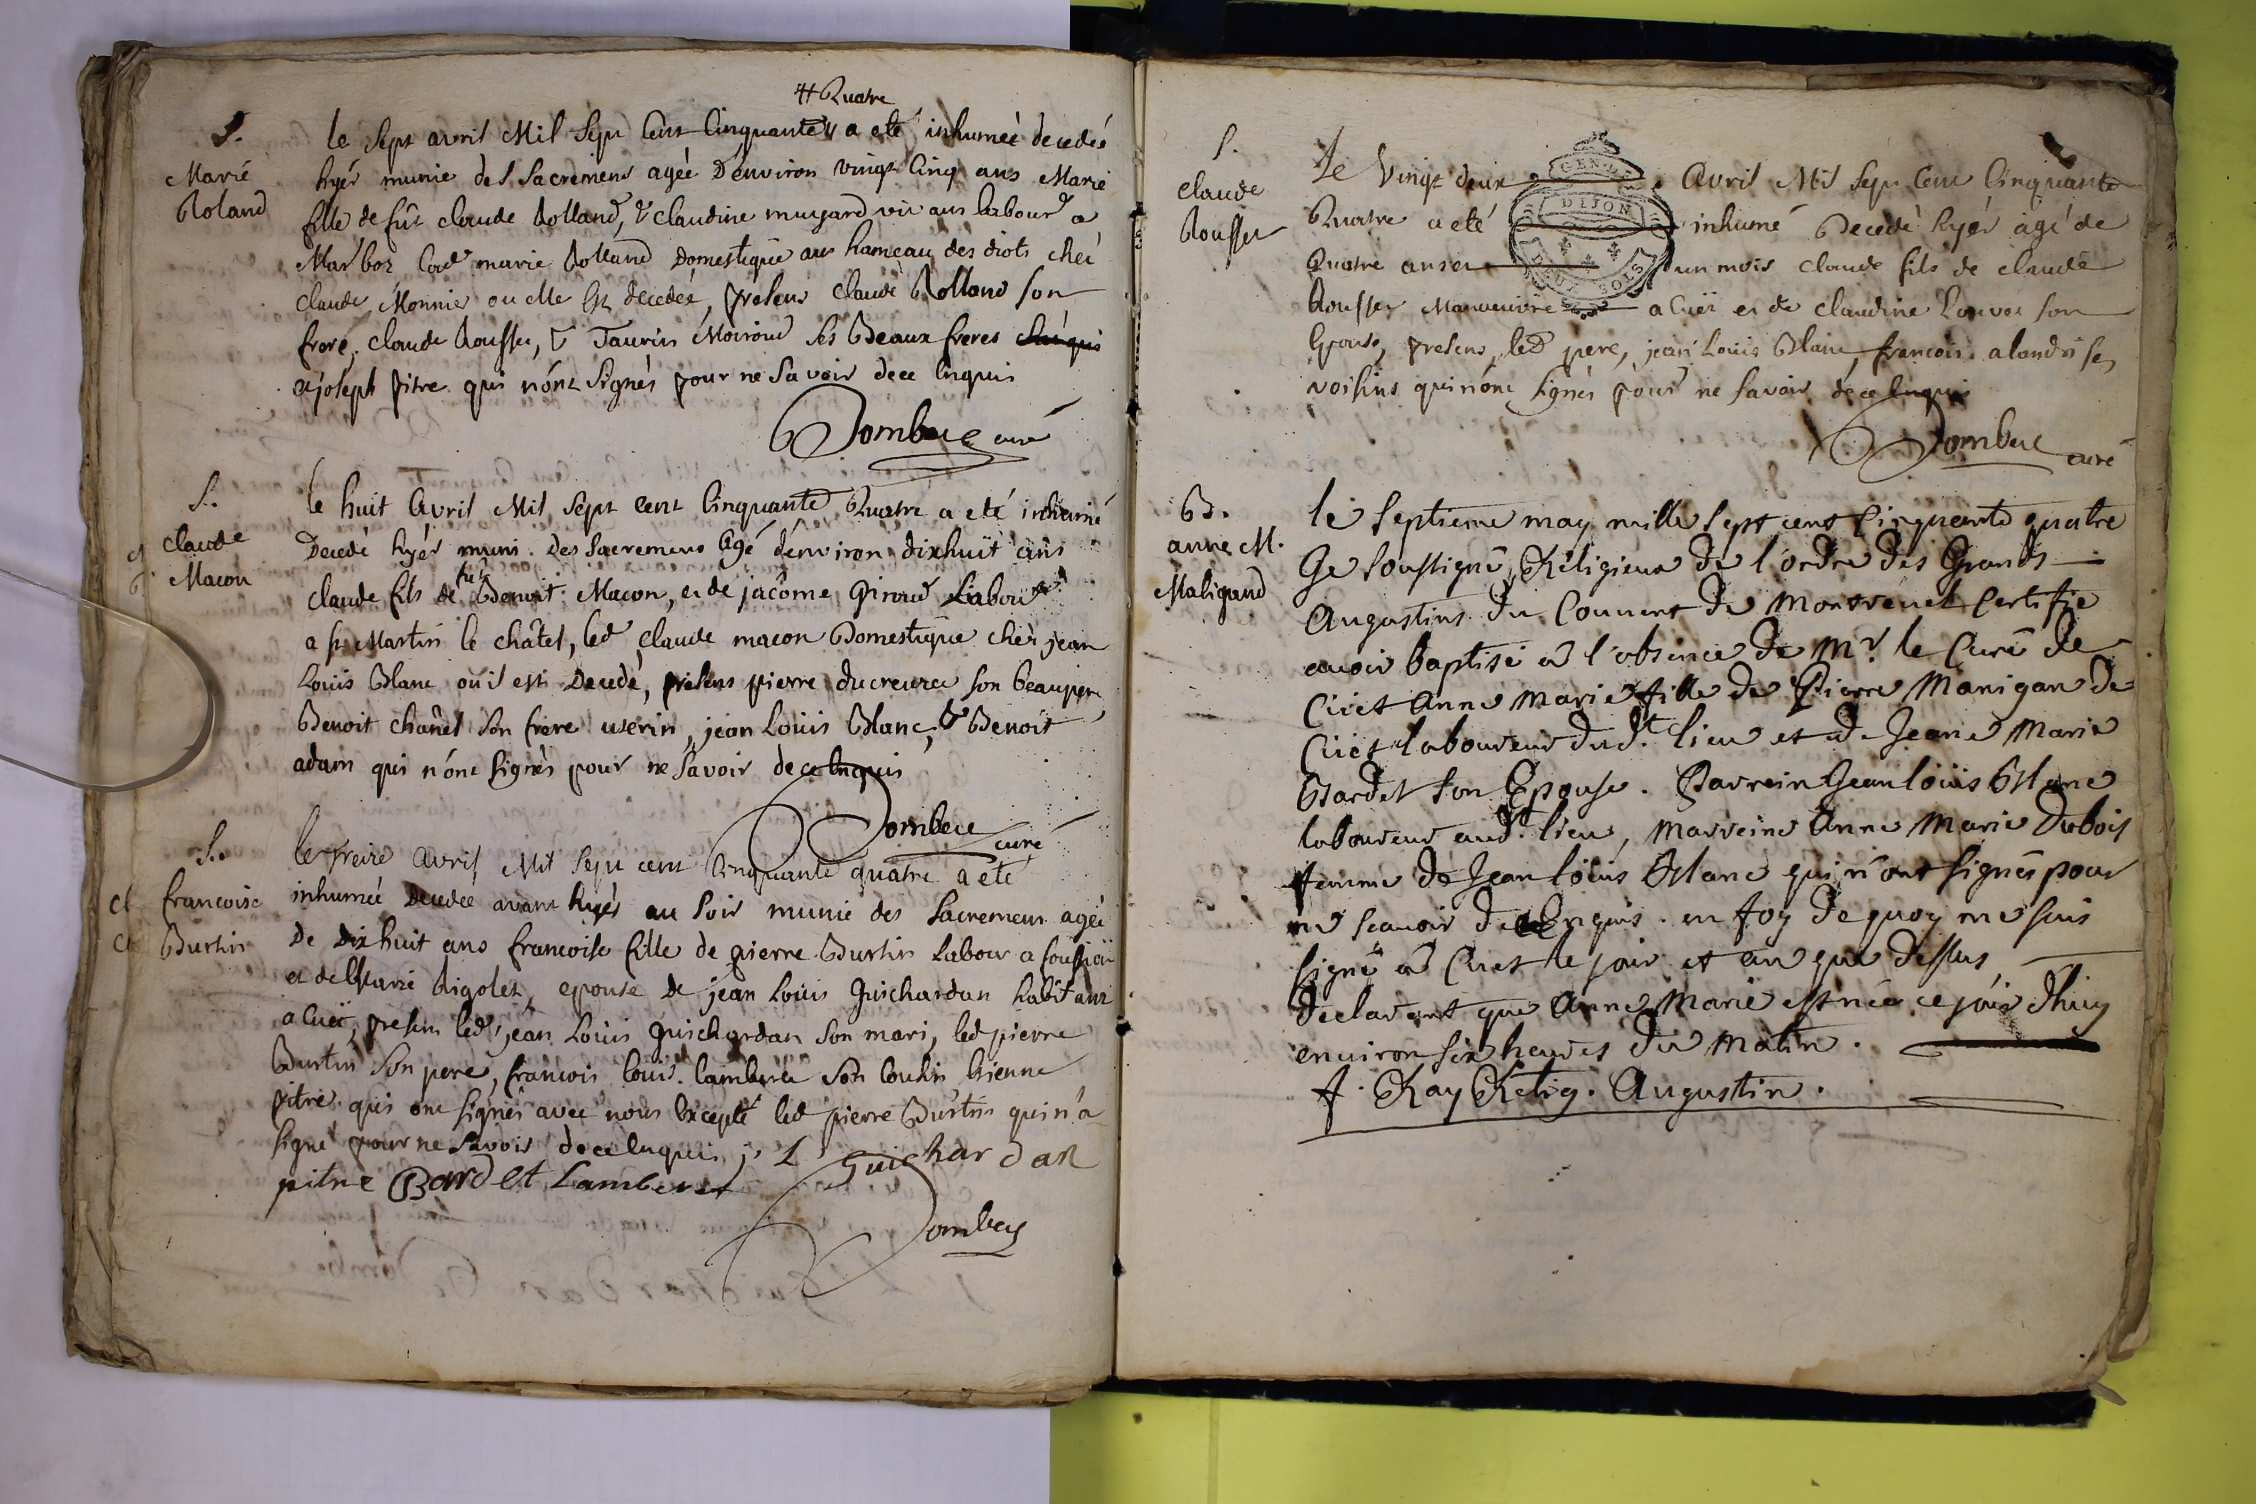 # Quatre
S.
Marie
Roland
le Sept avril Mil Sept Cent Cinquante # a eté inhumeé decedeé
hyér munie des Sacremens ageé D'environ vingt Cinq ans Marie
fille de fût claude Rolland, & claudine mugard vivans labourd a
Marboz lad marie Rolland Domestique au hameau des diots chéz
claude Monnié ou elle Est decedeé, présens claude Rolland son
frere, claude Rousset, & Taurin Moiroud ses Beaux freres
& joseph pitre qui n'ônt Signés pour ne Savoir de ce Enquis
Dombeie curé
S.
claude
Macon
le huit Avril Mil Sept cent Cinquante Quatre a eté inhumé
Decedé hyér muni des Sacremens Agé d'environ dixhuit ans
fût
claude fils de Benoit Macon, et de jacôme Giroud Labour
a st Martin le châtel, led claude macon Domestique chéz jean
Louis Blanc où il est Decedé, présens pierre ducreuze son beaupere
Benoit chanel son frere uterin, jean Louis Blanc, & Benoit
adam qui n'ônt signés pour ne Savoir de ce Enquis
Dombeie curé
S.
francoise
Burtin
le treize avril Mil Sept cent Cinquante quatre a eté
inhumeé Decedeé avant hyér au Soir munie des Sacremens ageé
De Dixhuit ans francoise fille de pierre Burtin Labour a foissiat
et de Marie Rigolet, epouse de jean Louis Guichardan habitant
a Cuët, présens led jean Louis guichardan son mari, led pierre
Burtin Son pere, francois Louis Lamberet son Cousin Etienne
pitre qui ont signés avec nous Excepté led pierre Burtin qui n'a
signé pour ne Savoir de ce Enquis j. L guichardan
pitre Bardet Lamberet
Dombey
S.
claude
Rousset
Le Vingt deux Avril Mil Sept Cent Cinquante
GEN
DIJON
DEUX SOLS
Quatre a eté inhumé Decedé hyér agé de
Quatre ans et un mois claude fils de claude
Rousset Manoeuvre a Cuët et de claudine Louvet son
Epouse, présens led pere, jean Louis Blanc, francois alandri ses
voisins qui n'ônt signés pour ne savoir de ce Enquis
Dombeie curé
B.
anne M.
Maligand
le septieme may mille sept cent cinquante quatre
Je soussigné Religieux de l'ordre des Grands
Augustins du Couvent de Montrevel certifie
avoir baptisé en l'absence de Mr. le Curé de
Cuet Anne Marie fille de Pierre Manigan de
Cuet laboureur dud.t lieu et de Jeane Marie
Bardet son Epouse. Parrein Jean loüis Blanc
laboureur aud.t lieu, marreine Anne Marie Dubois
femme de Jean loüis Blanc qui n'ont signés pour
ne scavoir de Enquis. en foy de quoy me suis
signé a Cuet le jour et an que dessus
declarant que Anne Marie est née ce jour d'huy
environ six heures du matin.
f. Ray Relig. Augustin.